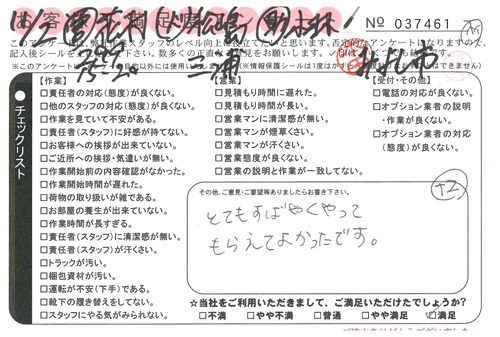 No 037461
このアンケートは、弊社作業スタッフのレベル向上に役立てたいと思います。否定的なアンケートになりますので、
チェックリスト
【作業】
□責任者の対応(態度)が良くない。
□他のスタッフの対応(態度)が良くない。
□作業を見ていて不安がある。
□責任者(スタッフ)に好感が持てない。
□お客様への挨拶が出来ていない。
□ご近所への挨拶・気遣いが無い。
□作業開始前の内容確認がなかった。
□作業開始時間が遅れた。
□荷物の取り扱いが雑である。
□お部屋の養生が出来ていない。
□作業時間が長すぎる。
□責任者(スタッフ)に清潔感が無い。
□責任者(スタッフ)が汗くさい。
□トラックが汚い。
□梱包資材が汚い。
□運転が不安(下手)である。
□靴下の履き替えをしてない。
□スタッフにやる気がみられない。
【営業】
□見積もり時間に遅れた。
□見積もり時間が長い。
□営業マンに清潔感が無い。
□営業マンが煙草くさい。
□営業マンが汗くさい。
□営業態度が良くない。
□営業の説明と作業が一致してない。
【受付・その他】
□電話の対応が良くない。
□オプション業者の説明
・作業が良くない。
□オプション業者の対応
(態度)が良くない。
その他、ご意見・ご要望等ありましたらお書き下さい。
+2
とてもすばやくやって
もらえてよかったです。
☆当社をご利用いただきまして、ご満足いただけたでしょうか?
□不満 □やや不満 □普通 □やや満足 ☑満足